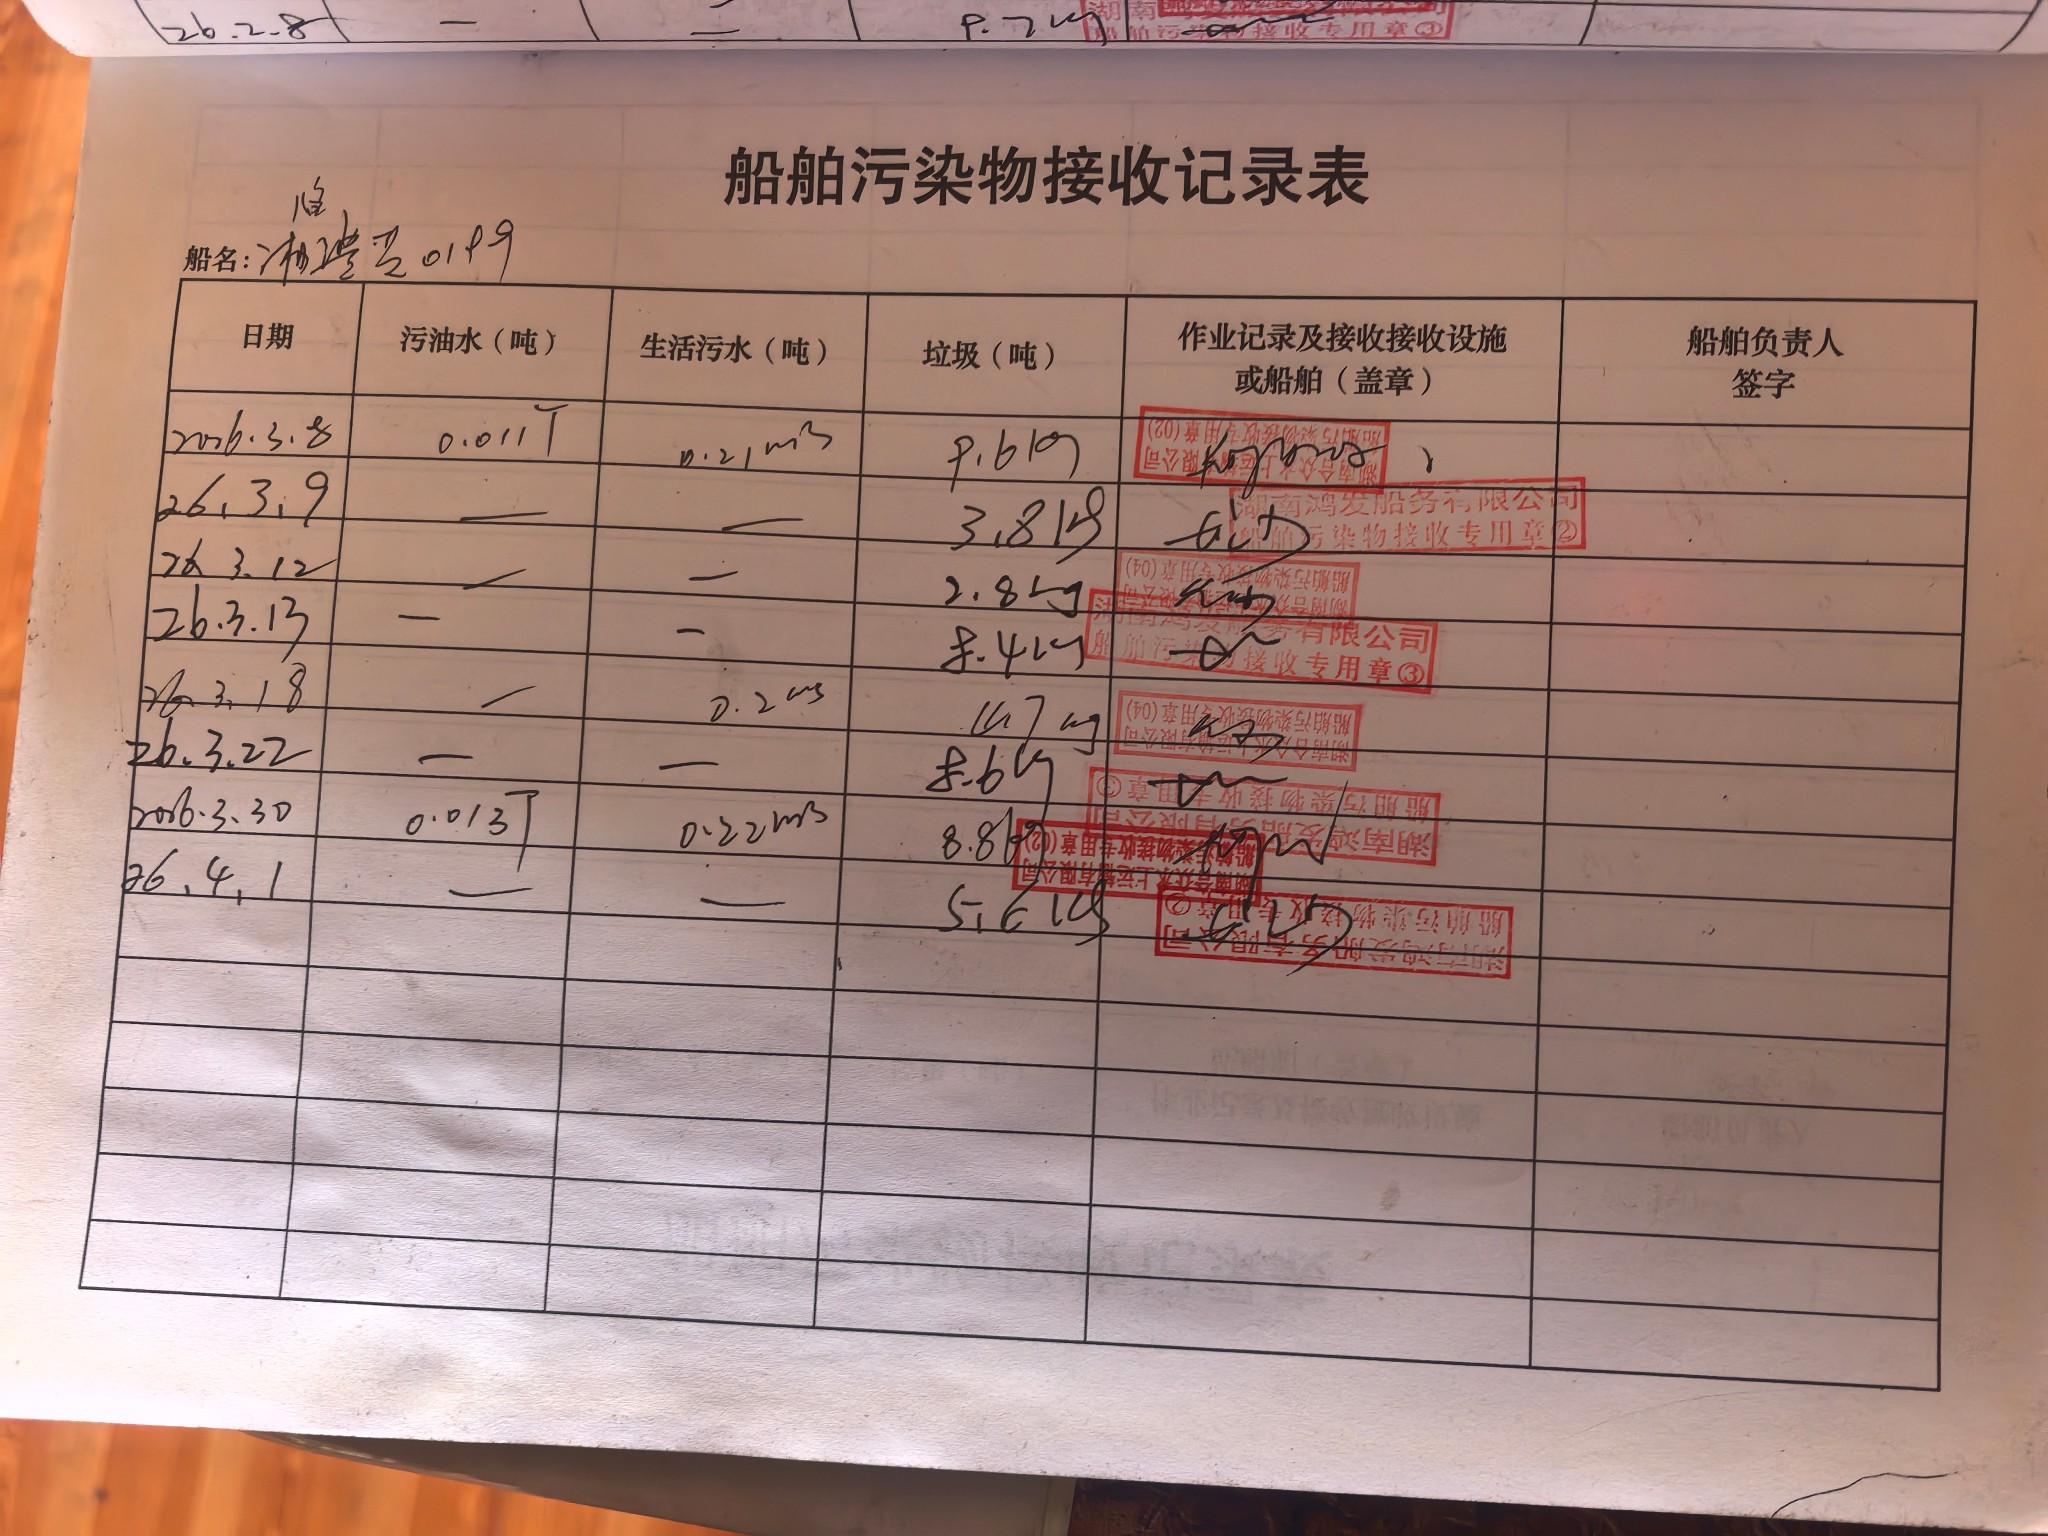 26.2.8 — — 9.7kg
船舶污染物接收专用章③
船舶污染物接收记录表
临
船名：湘 0199
日期 污油水（吨） 生活污水（吨） 垃圾（吨） 作业记录及接收接收设施 船舶负责人
或船舶（盖章） 签字
2026.3.8 0.011T 0.21m3 9.6kg
船舶污染物接收专用章(02)
湖南合众水上运输有限公司
26.3.9 — — 3.8kg
湖南鸿发船务有限公司
船舶污染物接收专用章②
26.3.12 — — 2.8kg
船舶污染物接收专用章(04)
26.3.13 — — 8.4kg
湖南鸿发船务有限公司
船舶污染物接收专用章③
26.3.18 — 0.2m3
船舶污染物接收专用章(04)
26.3.22 — — 8.6kg
船舶污染物接收专用章③
湖南鸿发船务有限公司
2026.3.30 0.013T 0.22m3 8.8kg
船舶污染物接收专用章(02)
26.4.1 — — 5.6kg
船舶污染物接收专用章②
湖南鸿发船务有限公司